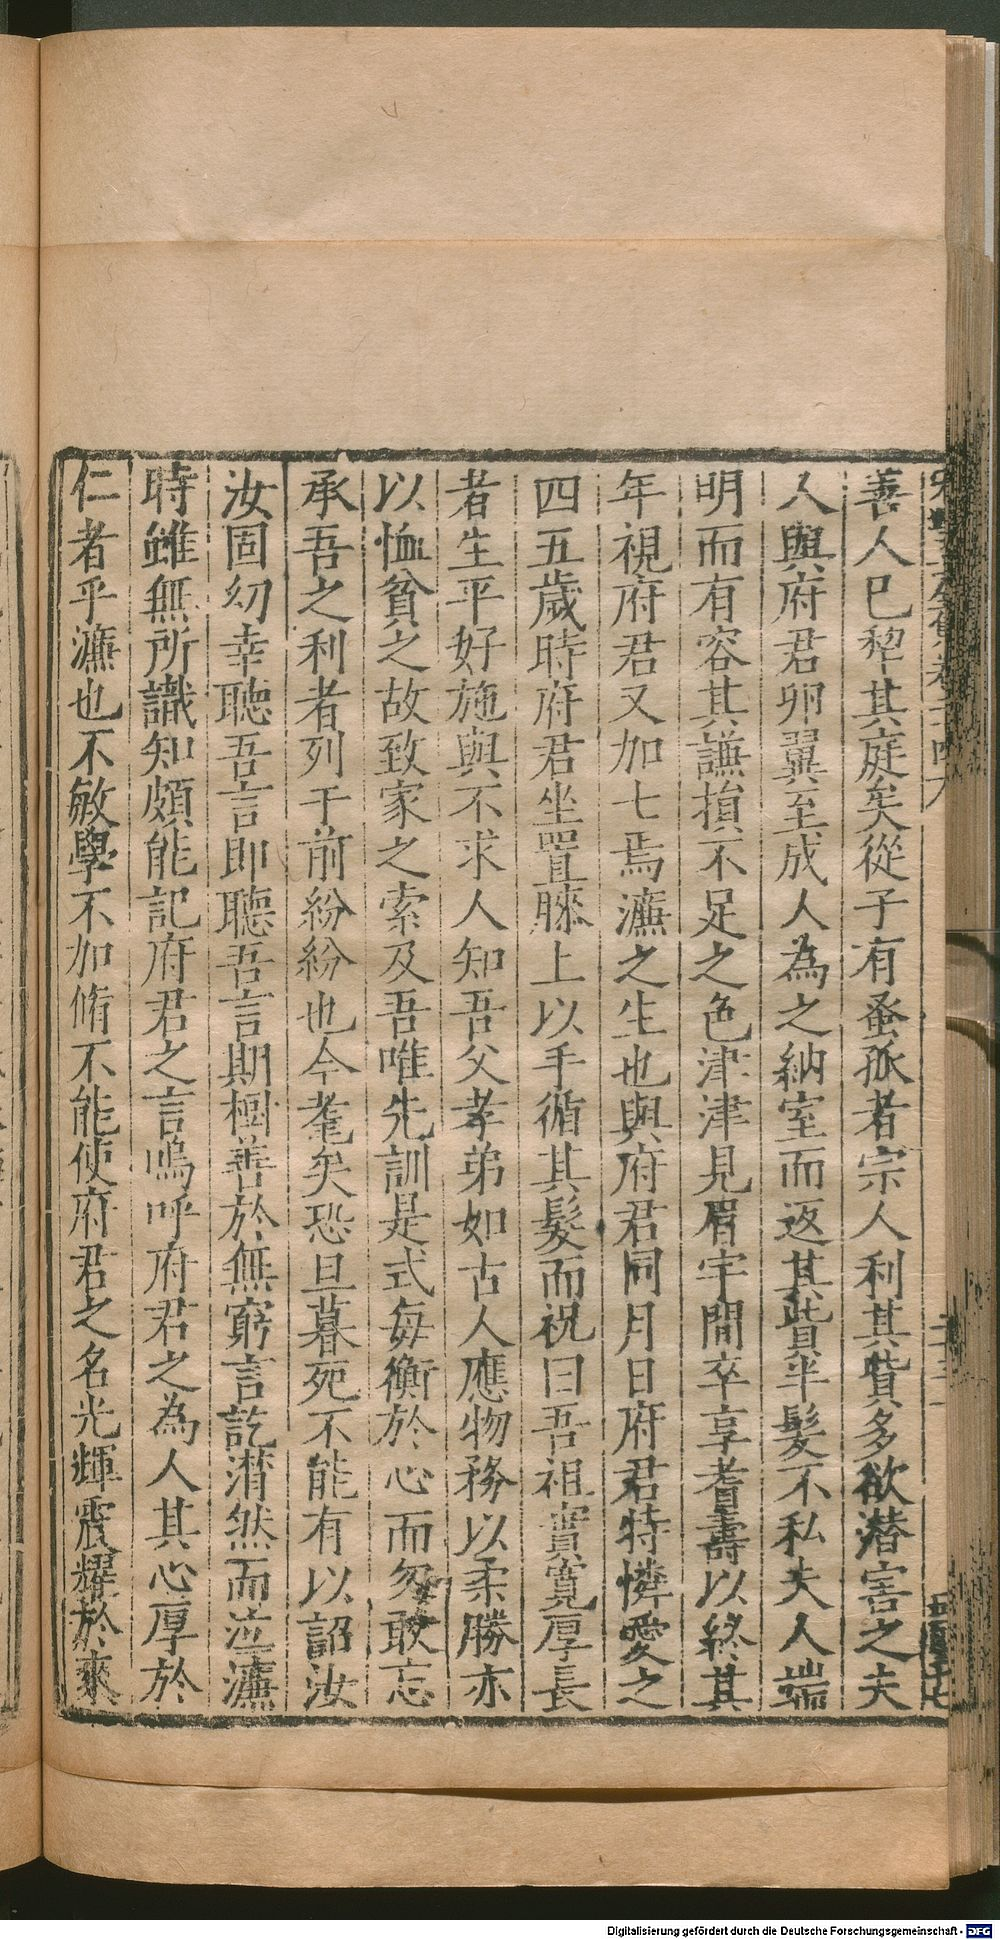 善人已犂其庭矣從子有蚤孤者宗人利其貲多欲潛害之夫
人與府君卵翼至成人為之納室而返其貲半髮不私夫人端
明而有容其謙損不足之色津津見眉宇間卒享耆壽以終其
年視府君又加七焉濂之生也與府君同月日府君特憐愛之
四五歲時府君坐置膝上以手循其髮而祝曰吾祖實寬厚長
者生平好施與不求人知吾父孝弟如古人應物務以柔勝亦
以恤貧之故致家之索及吾唯先訓是式每衡於心而勿敢忘
承吾之利者列于前紛紛也今耄矣恐旦暮死不能有以詔汝
汝固幼幸聽吾言即聽吾言期樹善於無窮言訖潸然而泣濂
時雖無所識知頗能記府君之言嗚呼府君之為人其心厚於
仁者乎濂也不敏學不加脩不能使府君之名光輝震耀於來
Digitalisierung gefördert durch die Deutsche Forschungsgemeinschaft - DFG